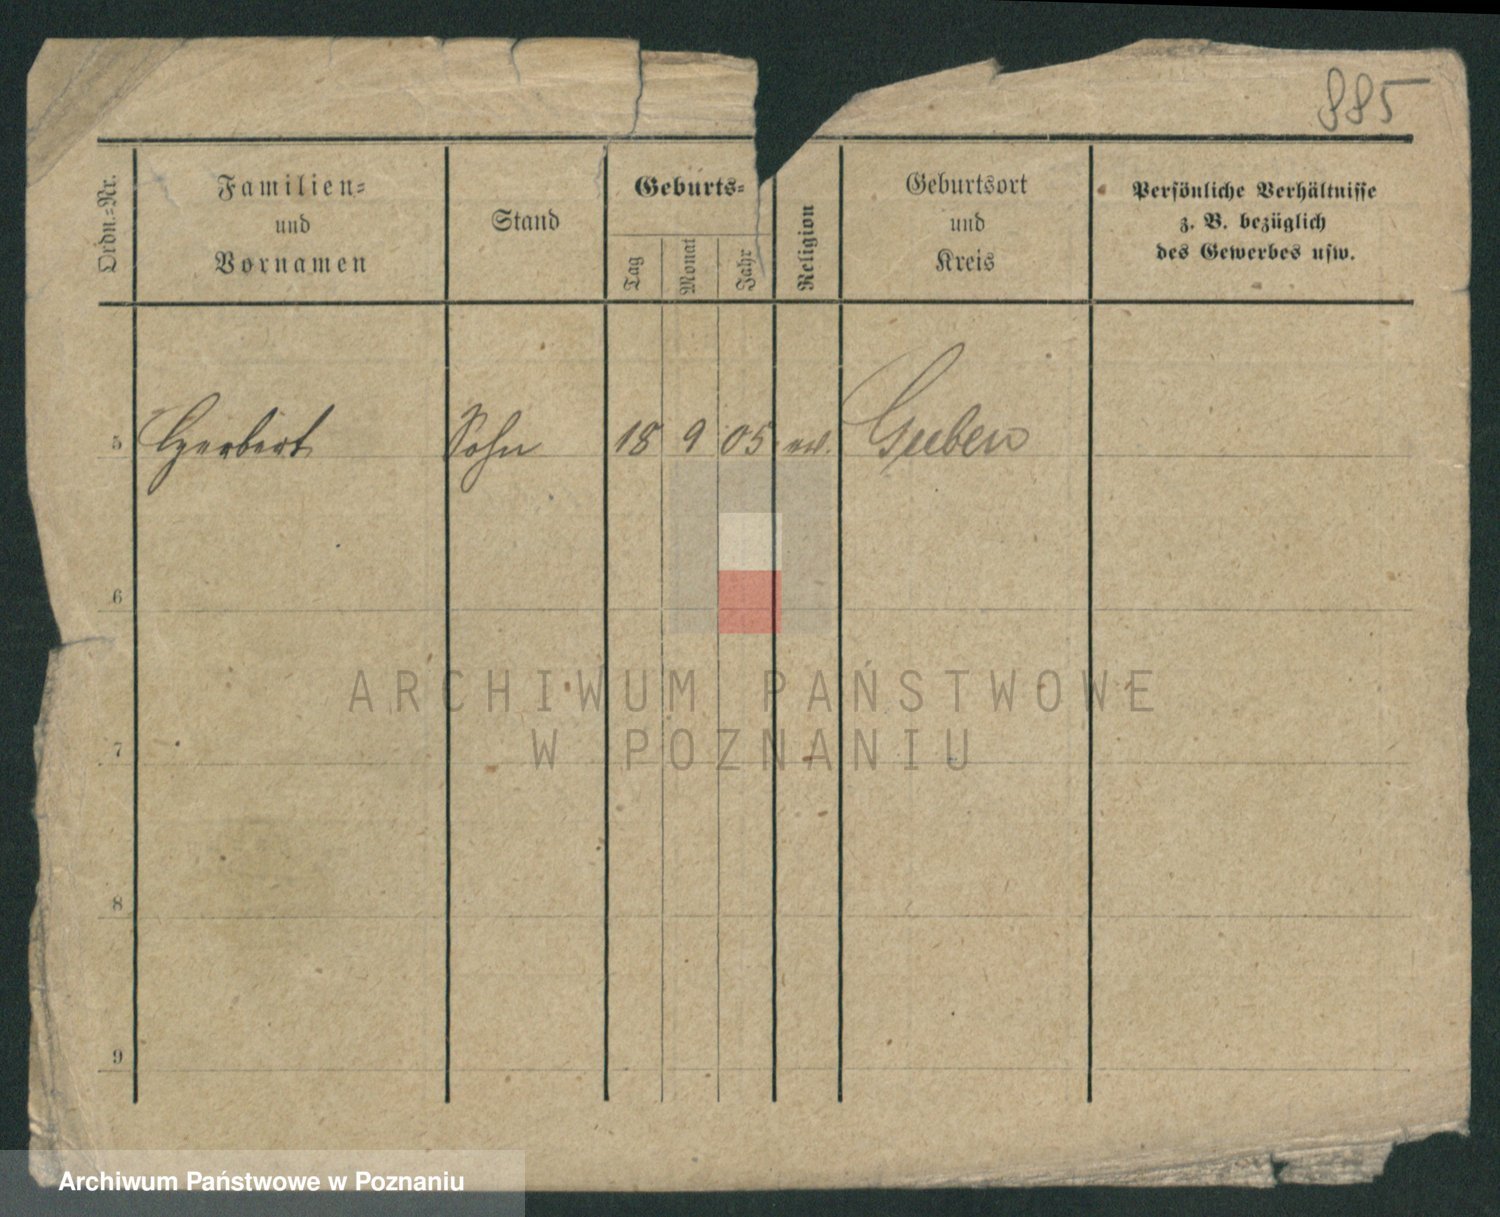 885
Ordn.-Nr.
Familien-
und
Vornamen
Stand
Geburts-
Tag
Monat
Jahr
Religion
Geburtsort
und
Kreis
Persönliche Verhältnisse
z. B. bezüglich
des Gewerbes usw.
5 Herbert Sohn 18 9 05 ev. Guben
6
7
8
9
ARCHIWUM PAŃSTWOWE
W POZNANIU
Archiwum Państwowe w Poznaniu